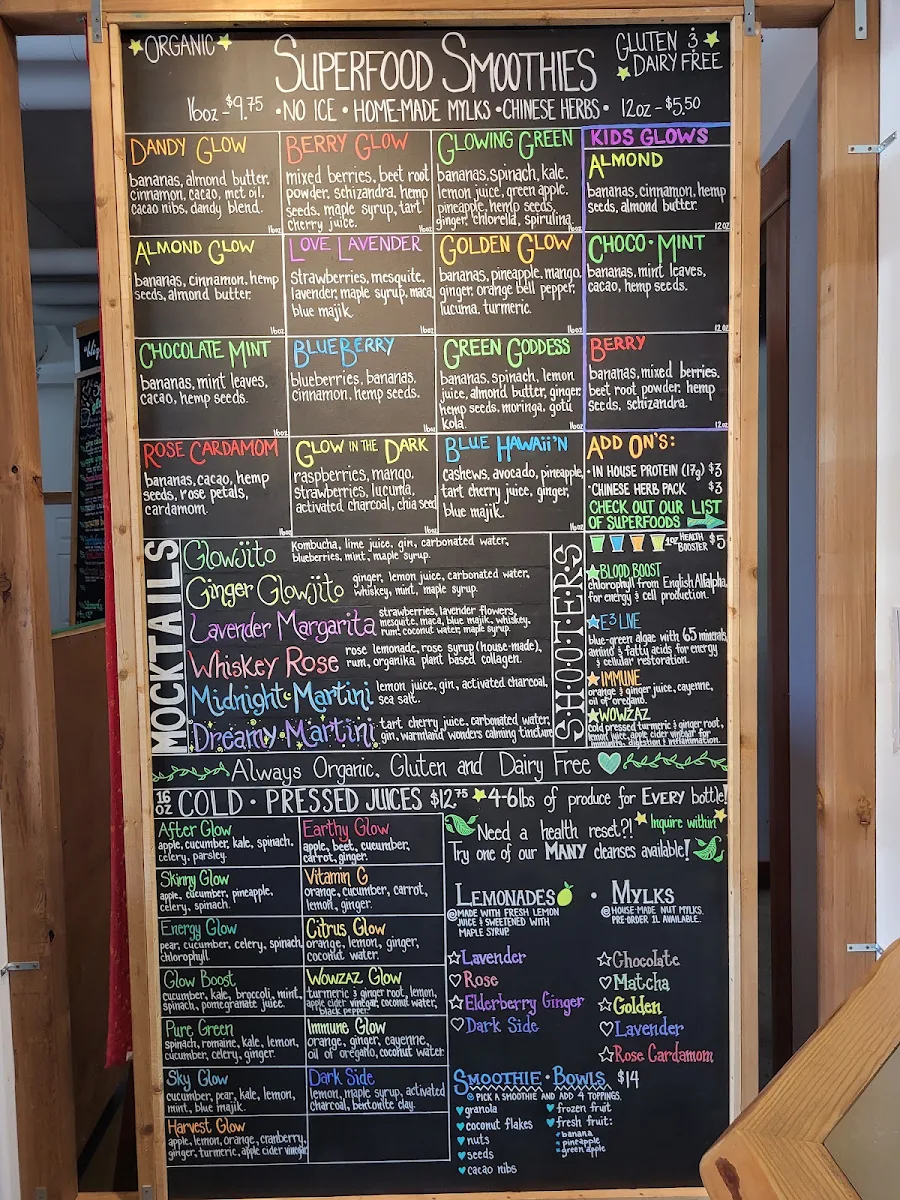 ORGANIC
SUPERFOOD SMOOTHIES
GLUTEN &
DAIRY FREE
16oz - $9.75 • NO ICE • HOME-MADE MYLKS • CHINESE HERBS • 12oz - $5.50
DANDY GLOW
bananas, almond butter,
cinnamon, cacao, mct oil,
cacao nibs, dandy blend.
16oz
BERRY GLOW
mixed berries, beet root
powder, schizandra, hemp
seeds, maple syrup, tart
cherry juice.
16oz
GLOWING GREEN
bananas, spinach, kale,
lemon juice, green apple,
pineapple, hemp seeds,
ginger, chlorella, spirulina.
16oz
KIDS GLOWS
ALMOND
bananas, cinnamon, hemp
seeds, almond butter.
12oz
ALMOND GLOW
bananas, cinnamon, hemp
seeds, almond butter.
16oz
LOVE LAVENDER
Strawberries, mesquite,
lavender, maple syrup, maca
blue majik.
16oz
GOLDEN GLOW
bananas, pineapple, mango,
ginger, orange bell pepper,
lucuma, turmeric.
16oz
CHOCO•MINT
bananas, mint leaves,
cacao, hemp seeds.
12oz
CHOCOLATE MINT
bananas, mint leaves,
cacao, hemp seeds.
16oz
BLUEBERRY
blueberries, bananas,
cinnamon, hemp seeds.
16oz
GREEN GODDESS
bananas, spinach, lemon
juice, almond butter, ginger
hemp seeds, moringa, gotu
kola.
16oz
BERRY
bananas, mixed berries,
beet root powder, hemp
seeds, schizandra.
12oz
ROSE CARDAMOM
bananas, cacao, hemp
seeds, rose petals,
cardamom.
16oz
GLOW IN THE DARK
raspberries, mango,
strawberries, lucuma,
activated charcoal, chia seed
16oz
BLUE HAWAII'N
cashews, avocado, pineapple,
tart cherry juice, ginger,
blue majik.
16oz
ADD ON'S:
• IN HOUSE PROTEIN (17g) $3
• CHINESE HERB PACK $3
CHECK OUT OUR LIST
OF SUPERFOODS
MOCKTAILS
Glowjito
Kombucha, lime juice, gin, carbonated water,
blueberries, mint, maple syrup.
Ginger Glowjito
ginger, lemon juice, carbonated water,
whiskey, mint, maple syrup.
Lavender Margarita
strawberries, lavender flowers,
mesquite, maca, blue majik, whiskey,
rum, coconut water, maple syrup.
Whiskey Rose
rose lemonade, rose syrup (house-made),
rum, organika plant based collagen.
Midnight•Martini
lemon juice, gin, activated charcoal,
sea salt.
Dreamy•Martini
tart cherry juice, carbonated water,
gin, warmland wonders calming tincture
S•H•O•O•T•E•R•S
1oz HEALTH
BOOSTER $5
BLOOD BOOST
chlorophyll from English Alfalpha,
for energy & cell production.
E3 LIVE
blue-green algae with 65 minerals,
amino & fatty acids for energy
& cellular restoration.
IMMUNE
orange & ginger juice, cayenne,
oil of oregano.
WOWZAZ
cold pressed turmeric & ginger root,
lemon juice, apple cider vinegar for
immunity, digestion & inflammation.
Always Organic, Gluten and Dairy Free
16
OZ COLD • PRESSED JUICES $12.75 4-6lbs of produce for EVERY bottle!
After Glow
apple, cucumber, kale, spinach,
celery, parsley.
Earthy Glow
apple, beet, cucumber,
carrot, ginger.
Skinny Glow
apple, cucumber, pineapple,
celery, spinach.
Vitamin G
orange, cucumber, carrot,
lemon, ginger.
Energy Glow
pear, cucumber, celery, spinach,
chlorophyll.
Citrus Glow
orange, lemon, ginger,
coconut water.
Glow Boost
cucumber, kale, broccoli, mint,
spinach, pomegranate juice.
Wowzaz Glow
turmeric & ginger root, lemon,
apple cider vinegar, coconut water,
black pepper.
Pure Green
spinach, romaine, kale, lemon,
cucumber, celery, ginger.
Immune Glow
orange, ginger, cayenne,
oil of oregano, coconut water.
Sky Glow
cucumber, pear, kale, lemon,
mint, blue majik.
Dark Side
lemon, maple syrup, activated
charcoal, bentonite clay.
Harvest Glow
apple, lemon, orange, cranberry,
ginger, turmeric, apple cider vinegar
Need a health reset?! Inquire within
Try one of our MANY cleanses available!
LEMONADES
MADE WITH FRESH LEMON
JUICE & SWEETENED WITH
MAPLE SYRUP.
Lavender
Rose
Elderberry Ginger
Dark Side
• MYLKS
HOUSE-MADE NUT MYLKS.
PRE-ORDER 1L AVAILABLE.
Chocolate
Matcha
Golden
Lavender
Rose Cardamom
SMOOTHIE • BOWLS $14
PICK A SMOOTHIE AND ADD 4 TOPPINGS.
granola
coconut flakes
nuts
seeds
cacao nibs
frozen fruit
fresh fruit:
banana
pineapple
green apple